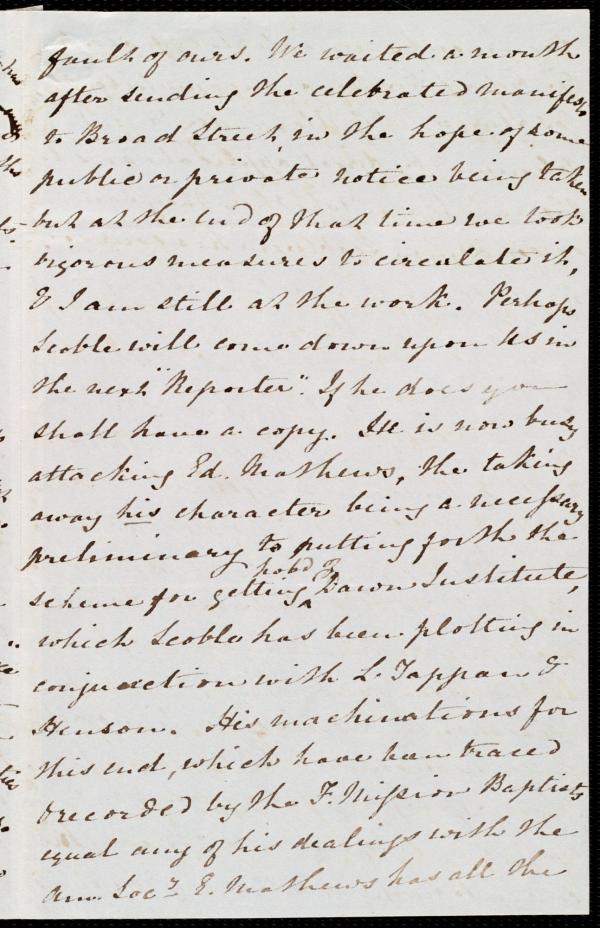 fault of ours. We waited a month
after sending the celebrated manifesto
to Broad Street, in the hope of some
public or private notice being taken
but at the end of that time we took
vigorous measures to circulate it,
& I am still at the work. Perhaps
Scoble will come down upon us in
the next "Reporter". If he does you
shall have a copy. He is now busy
attacking Ed. Mathews, the taking
away his character being a necessary
preliminary to putting forth the
scheme for getting hold of Dawn Institute,
which Scoble has been plotting in
conjunction with L. Tappan &
Henson. His machinations for
this end, which have been traced
& recorded by the F. Mission Baptists
equal any of his dealings with the
Am. Socy. E. Mathews has all the